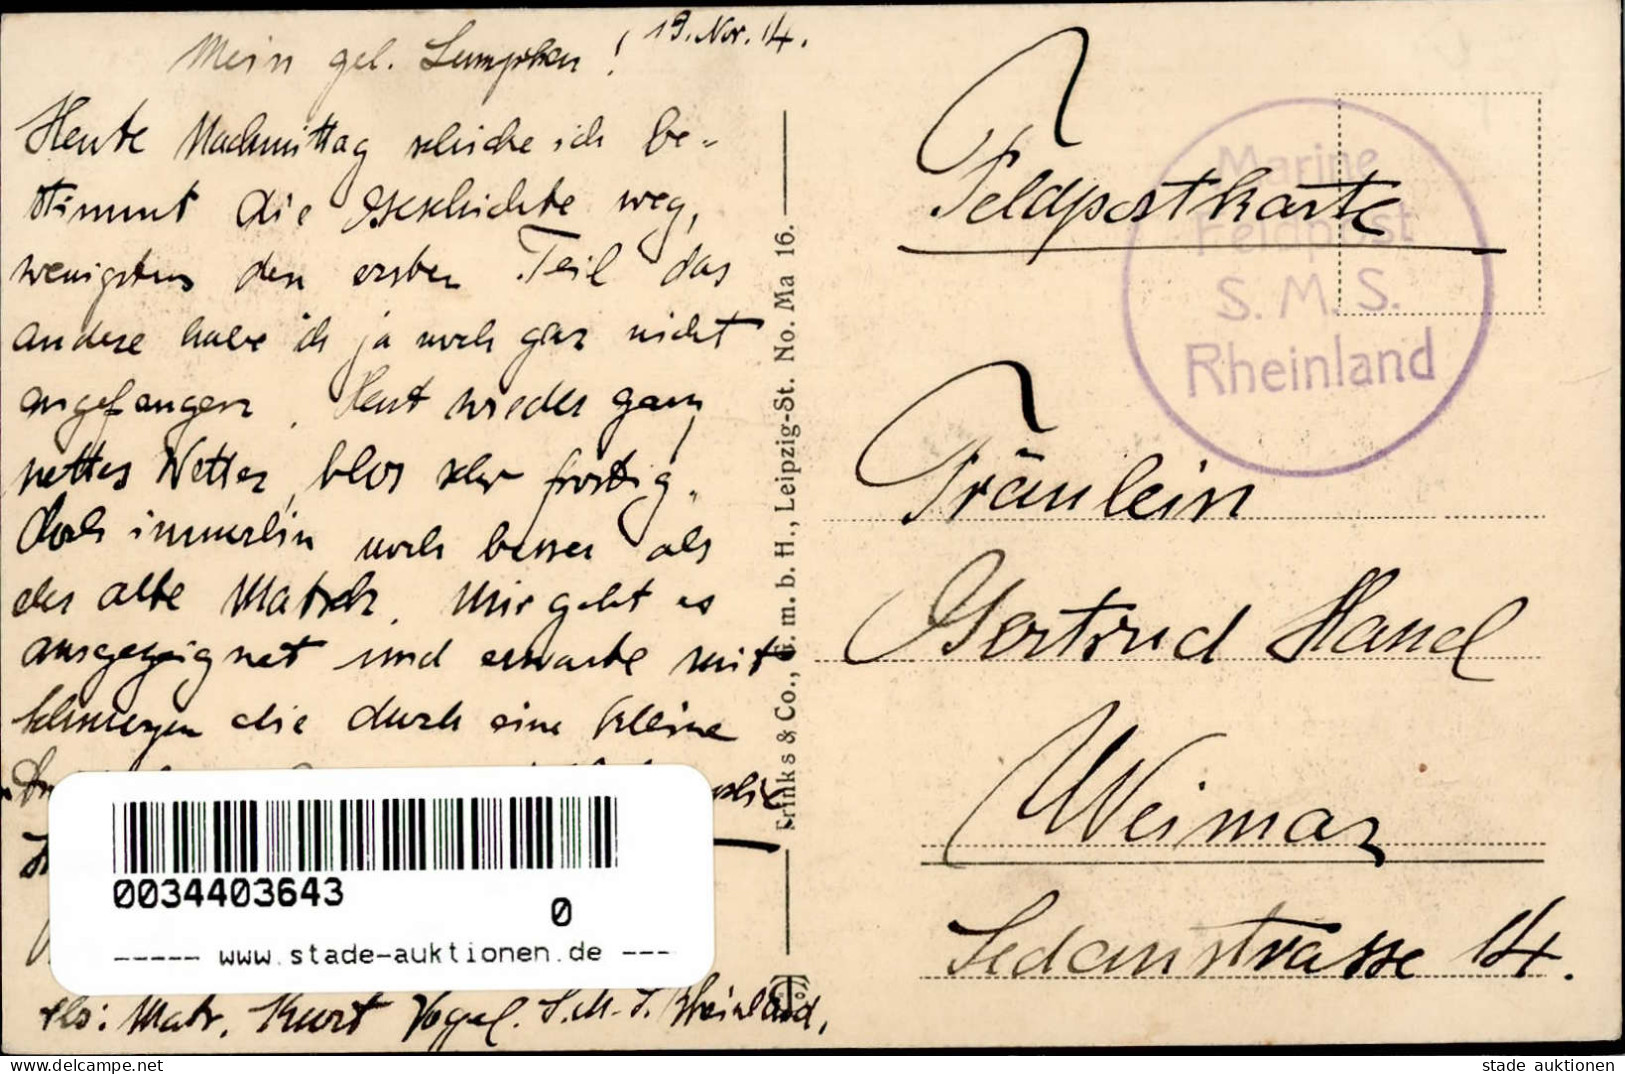 19. Nov. 14.
Mein gel. Lumpchen!
Heute Nachmittag schicke ich be-
stimmt die Geschichte weg,
wenigstens den ersten Teil das
andere habe ich ja noch gar nicht
angefangen. Heut wieder ganz
nettes Wetter, blos sehr frostig,
doch immerhin noch besser als
der alte Matsch. Mir geht es
ausgezeignet und erwarte mit
Schmerzen die durch eine kleine
Abs: Matr. Kurt Vogel. S.M.S. Rheinland,
Erinks & Co., G. m. b. H., Leipzig-St. No. Ma 16.
Feldpostkarte
Marine
Feldpost
S. M. S.
Rheinland
Fräulein
Gertrud Hand
Weimar
Sedanstrasse 14.
0034403643
0
----- www.stade-auktionen.de ---
delcampe.net
stade auktionen